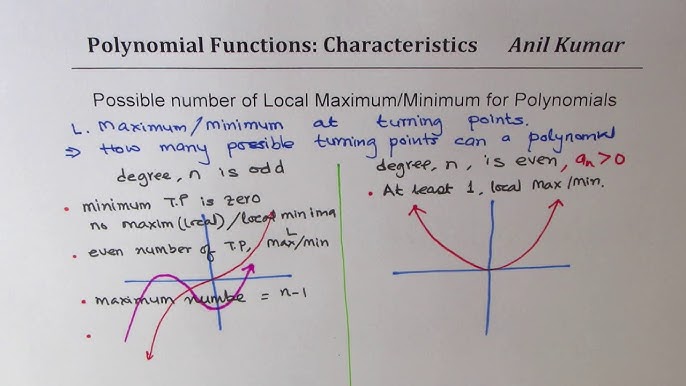 Polynomial Functions: Characteristics Anil Kumar
Possible number of Local Maximum/Minimum for Polynomials
L. Maximum/minimum at turning points.
⇒ How many possible turning points can a polynomial
degree, n is odd
• minimum T.P is zero
no maxim (local)/local minima
• even number of T.P, L max/min
• maximum numbe = n-1
•
degree, n, is even, aₙ>0
• At least 1, local max/min.